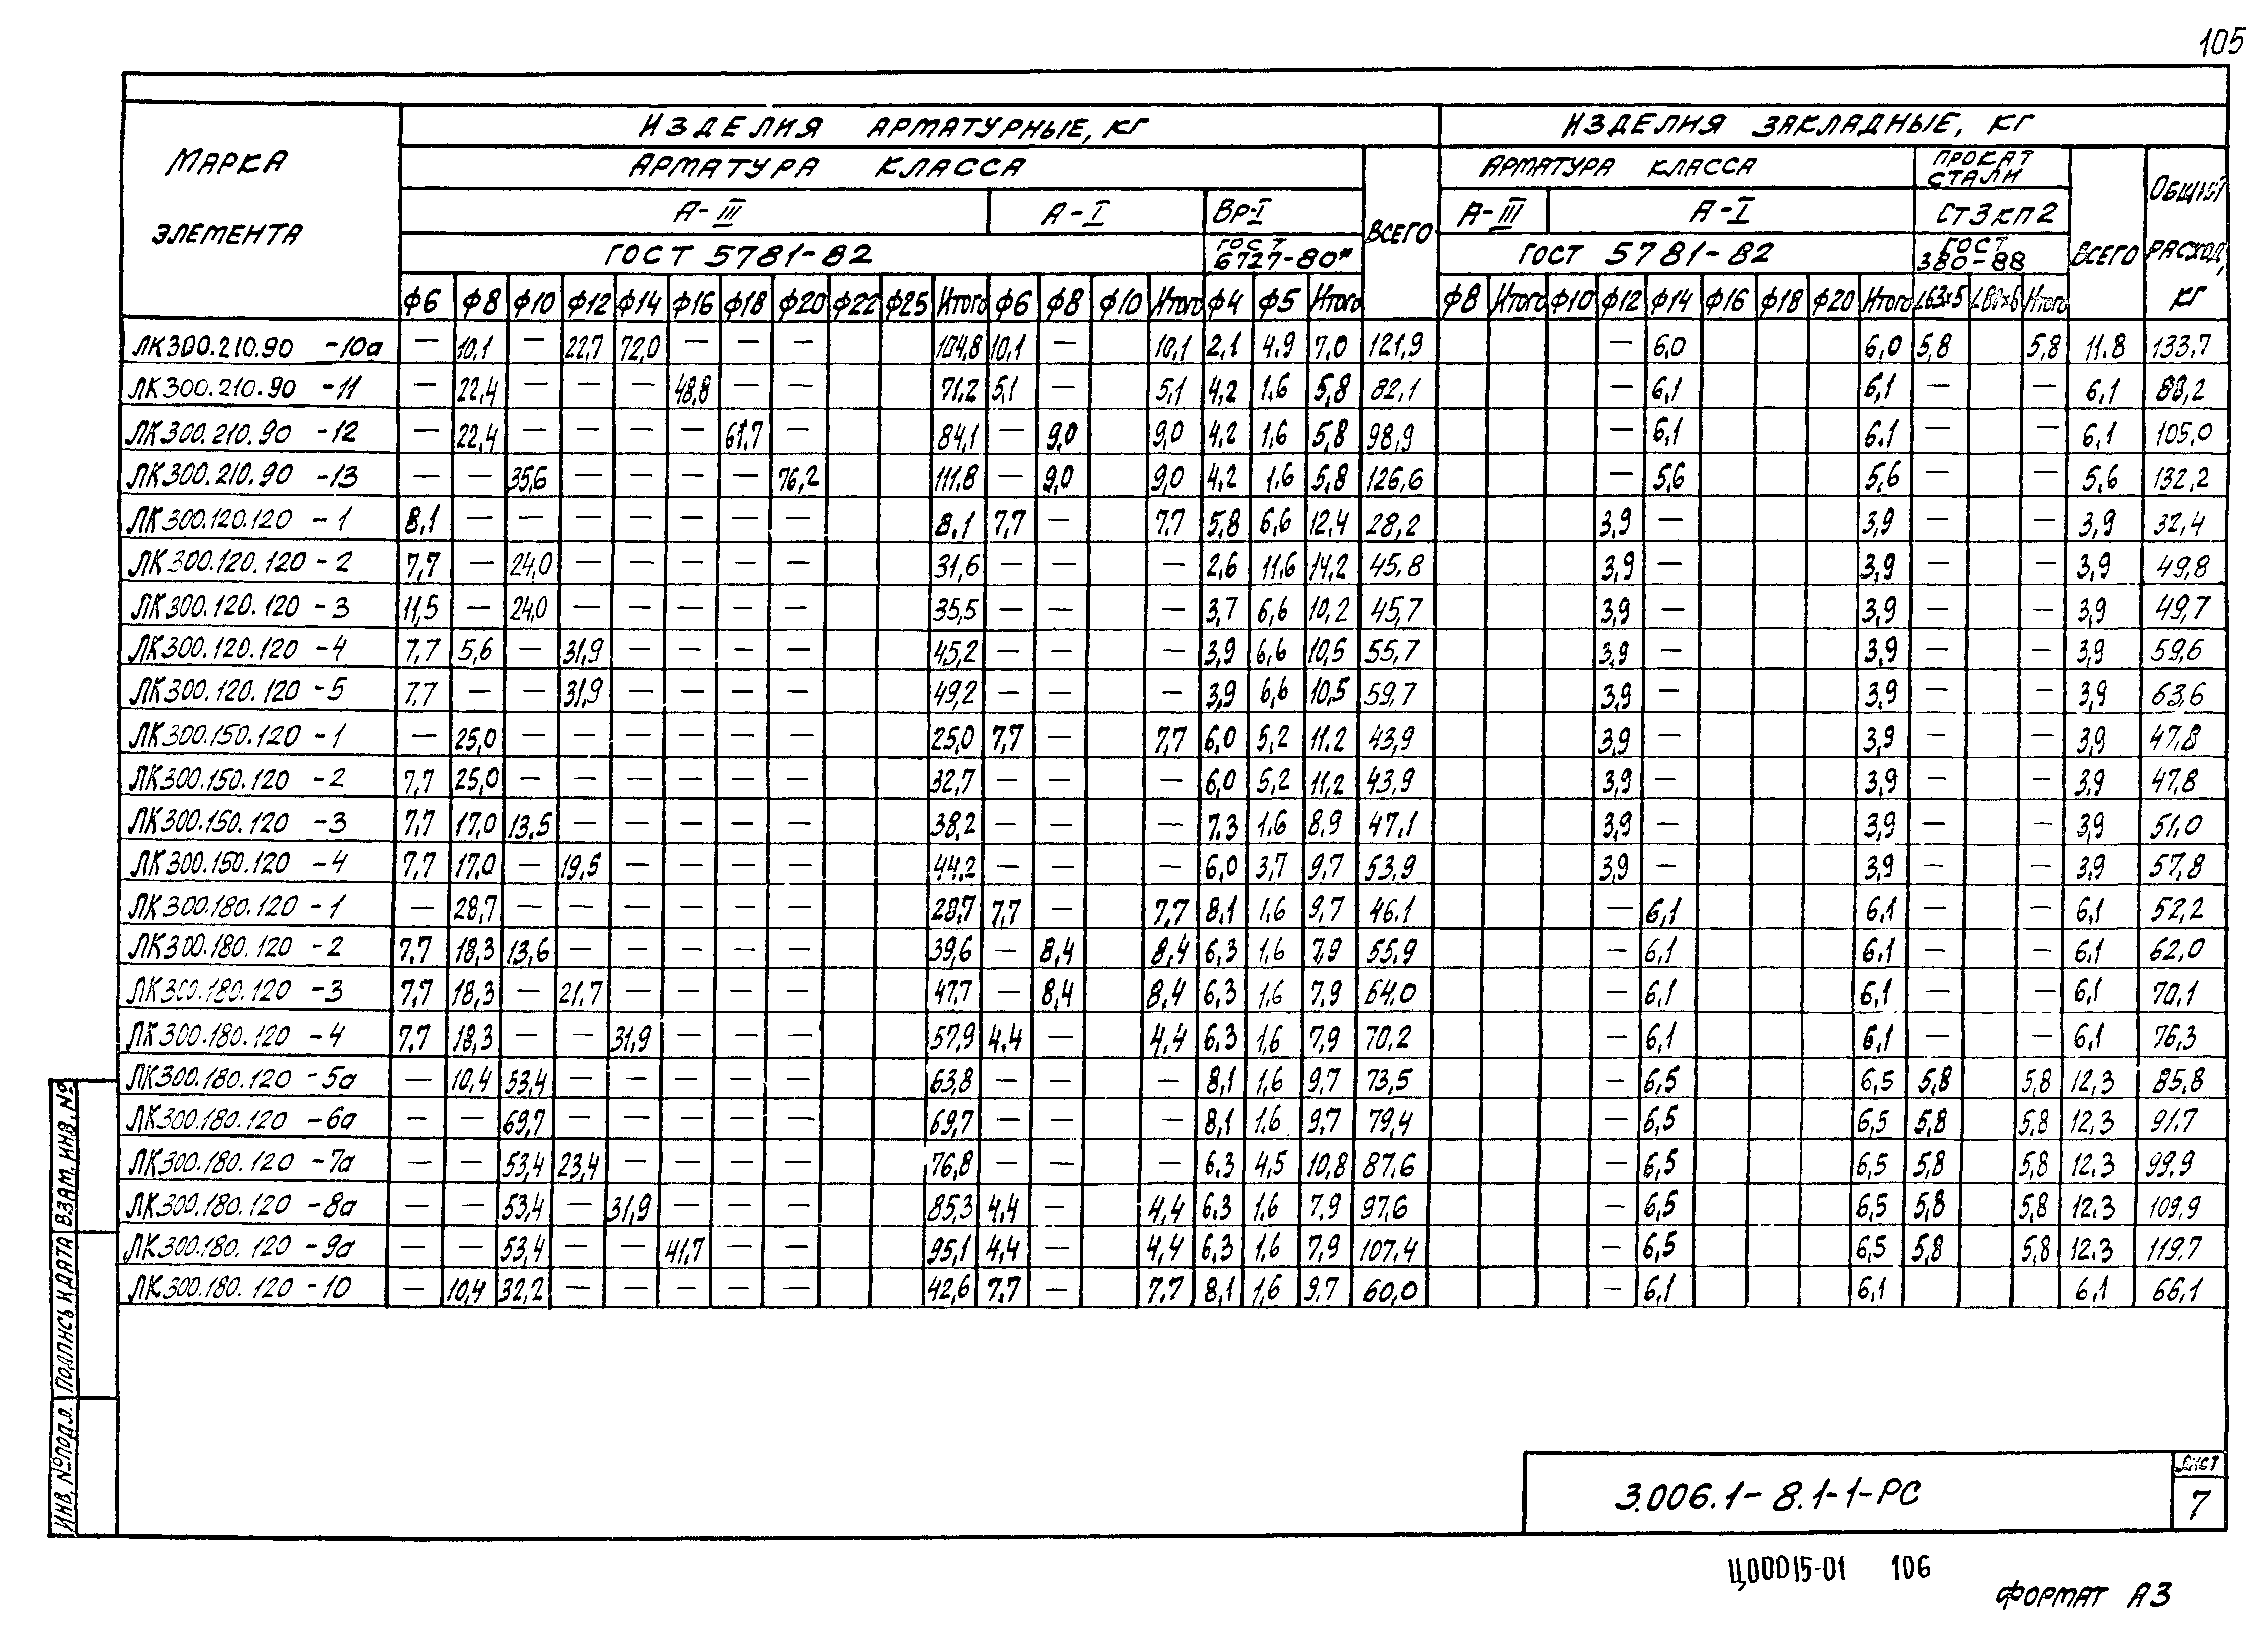 105
ИЗДЕЛИЯ АРМАТУРНЫЕ, КГ ИЗДЕЛИЯ ЗАКЛАДНЫЕ, КГ
МАРКА ЭЛЕМЕНТА АРМАТУРА КЛАССА ВСЕГО АРМАТУРА КЛАССА ПРОКАТ СТАЛИ ВСЕГО ОБЩИЙ РАСХОД, КГ
А-III А-I Вр-I А-III А-I СТ3КП2
ГОСТ 5781-82 ГОСТ 6727-80* ГОСТ 5781-82 ГОСТ 380-88
ф6 ф8 ф10 ф12 ф14 ф16 ф18 ф20 ф22 ф25 Итого ф6 ф8 ф10 Итого ф4 ф5 Итого ф8 Итого ф10 ф12 ф14 ф16 ф18 ф20 Итого L63x5 L80x6 Итого
ЛК300.210.90 -10а — 10,1 — 22,7 72,0 — — — 104,8 10,1 — 10,1 2,1 4.9 7,0 121,9 — 6,0 6,0 5,8 5,8 11.8 133,7
ЛК300.210.90 -11 — 22,4 — — — 48,8 — — 71,2 5,1 — 5,1 4,2 1,6 5,8 82,1 — 6,1 6,1 — — 6,1 88,2
ЛК300.210.90 -12 — 22,4 — — — — 61,7 — 84,1 — 9,0 9,0 4,2 1,6 5,8 98,9 — 6,1 6,1 — — 6,1 105,0
ЛК300.210.90 -13 — — 35,6 — — — — 76,2 111,8 — 9,0 9,0 4,2 1.6 5,8 126,6 — 5,6 5,6 — — 5,6 132,2
ЛК300.120.120 -1 8,1 — — — — — — — 8,1 7,7 — 7,7 5,8 6,6 12,4 28,2 3,9 — 3,9 — — 3,9 32,4
ЛК300.120.120 -2 7,7 — 24,0 — — — — — 31,6 — — — 2,6 11.6 14,2 45,8 3,9 — 3,9 — — 3,9 49,8
ЛК300.120.120 -3 11,5 — 24,0 — — — — — 35,5 — — — 3,7 6,6 10,2 45,7 3,9 — 3,9 — — 3,9 49,7
ЛК300.120.120 -4 7,7 5,6 — 31,9 — — — — 45,2 — — — 3,9 6,6 10,5 55,7 3,9 — 3,9 — — 3,9 59,6
ЛК300.120.120 -5 7,7 — — 31,9 — — — — 49,2 — — — 3,9 6,6 10,5 59,7 3,9 — 3,9 — — 3,9 63,6
ЛК300.150.120 -1 — 25,0 — — — — — — 25,0 7,7 — 7,7 6,0 5,2 11.2 43,9 3,9 — 3,9 — — 3,9 47,8
ЛК300.150.120 -2 7,7 25,0 — — — — — — 32,7 — — — 6,0 5,2 11,2 43,9 3,9 — 3,9 — — 3,9 47,8
ЛК300.150.120 -3 7,7 17,0 13,5 — — — — — 38,2 — — — 7,3 1,6 8,9 47,1 3,9 — 3,9 — — 3,9 51,0
ЛК300.150.120 -4 7,7 17,0 — 19,5 — — — — 44,2 — — — 6,0 3,7 9,7 53,9 3,9 — 3,9 — — 3,9 57,8
ЛК300.180.120 -1 — 28,7 — — — — — — 28,7 7,7 — 7,7 8,1 1,6 9,7 46.1 — 6,1 6,1 — — 6,1 52,2
ЛК300.180.120 -2 7,7 18,3 13,6 — — — — — 39,6 — 8,4 8,4 6,3 1,6 7,9 55,9 — 6,1 6,1 — — 6,1 62,0
ЛК300.180.120 -3 7,7 18,3 — 21,7 — — — — 47,7 — 8,4 8,4 6,3 1,6 7,9 64,0 — 6,1 6,1 — — 6,1 70,1
ЛК300.180.120 -4 7,7 18,3 — — 31,9 — — — 57,9 4,4 — 4,4 6,3 1,6 7,9 70,2 — 6,1 6,1 — — 6,1 76,3
ЛК300.180.120 -5а — 10,4 53,4 — — — — — 63,8 — — — 8,1 1,6 9,7 73,5 — 6,5 6,5 5,8 5,8 12,3 85,8
ЛК300.180.120 -6а — — 69,7 — — — — — 69,7 — — — 8,1 1,6 9,7 79,4 — 6,5 6,5 5,8 5,8 12,3 91,7
ЛК300.180.120 -7а — — 53,4 23,4 — — — — 76,8 — — — 6,3 4,5 10,8 87,6 — 6,5 6,5 5,8 5,8 12,3 99,9
ЛК300.180.120 -8а — — 53,4 — 31,9 — — — 85,3 4,4 — 4,4 6,3 1,6 7,9 97,6 — 6,5 6,5 5,8 5,8 12,3 109,9
ЛК300.180.120 -9а — — 53,4 — — 41,7 — — 95,1 4,4 — 4,4 6,3 1,6 7,9 107,4 — 6,5 6,5 5,8 5,8 12,3 119,7
ЛК300.180.120 -10 — 10,4 32,2 — — — — — 42,6 7,7 — 7,7 8,1 1,6 9,7 60,0 — 6,1 6,1 6,1 66,1
ИНВ.№ПОДЛ. ПОДПИСЬ И ДАТА ВЗАМ.ИНВ.№
3.006.1-8.1-1-РС
ЛИСТ
7
Ц00015-01 106
ФОРМАТ А3